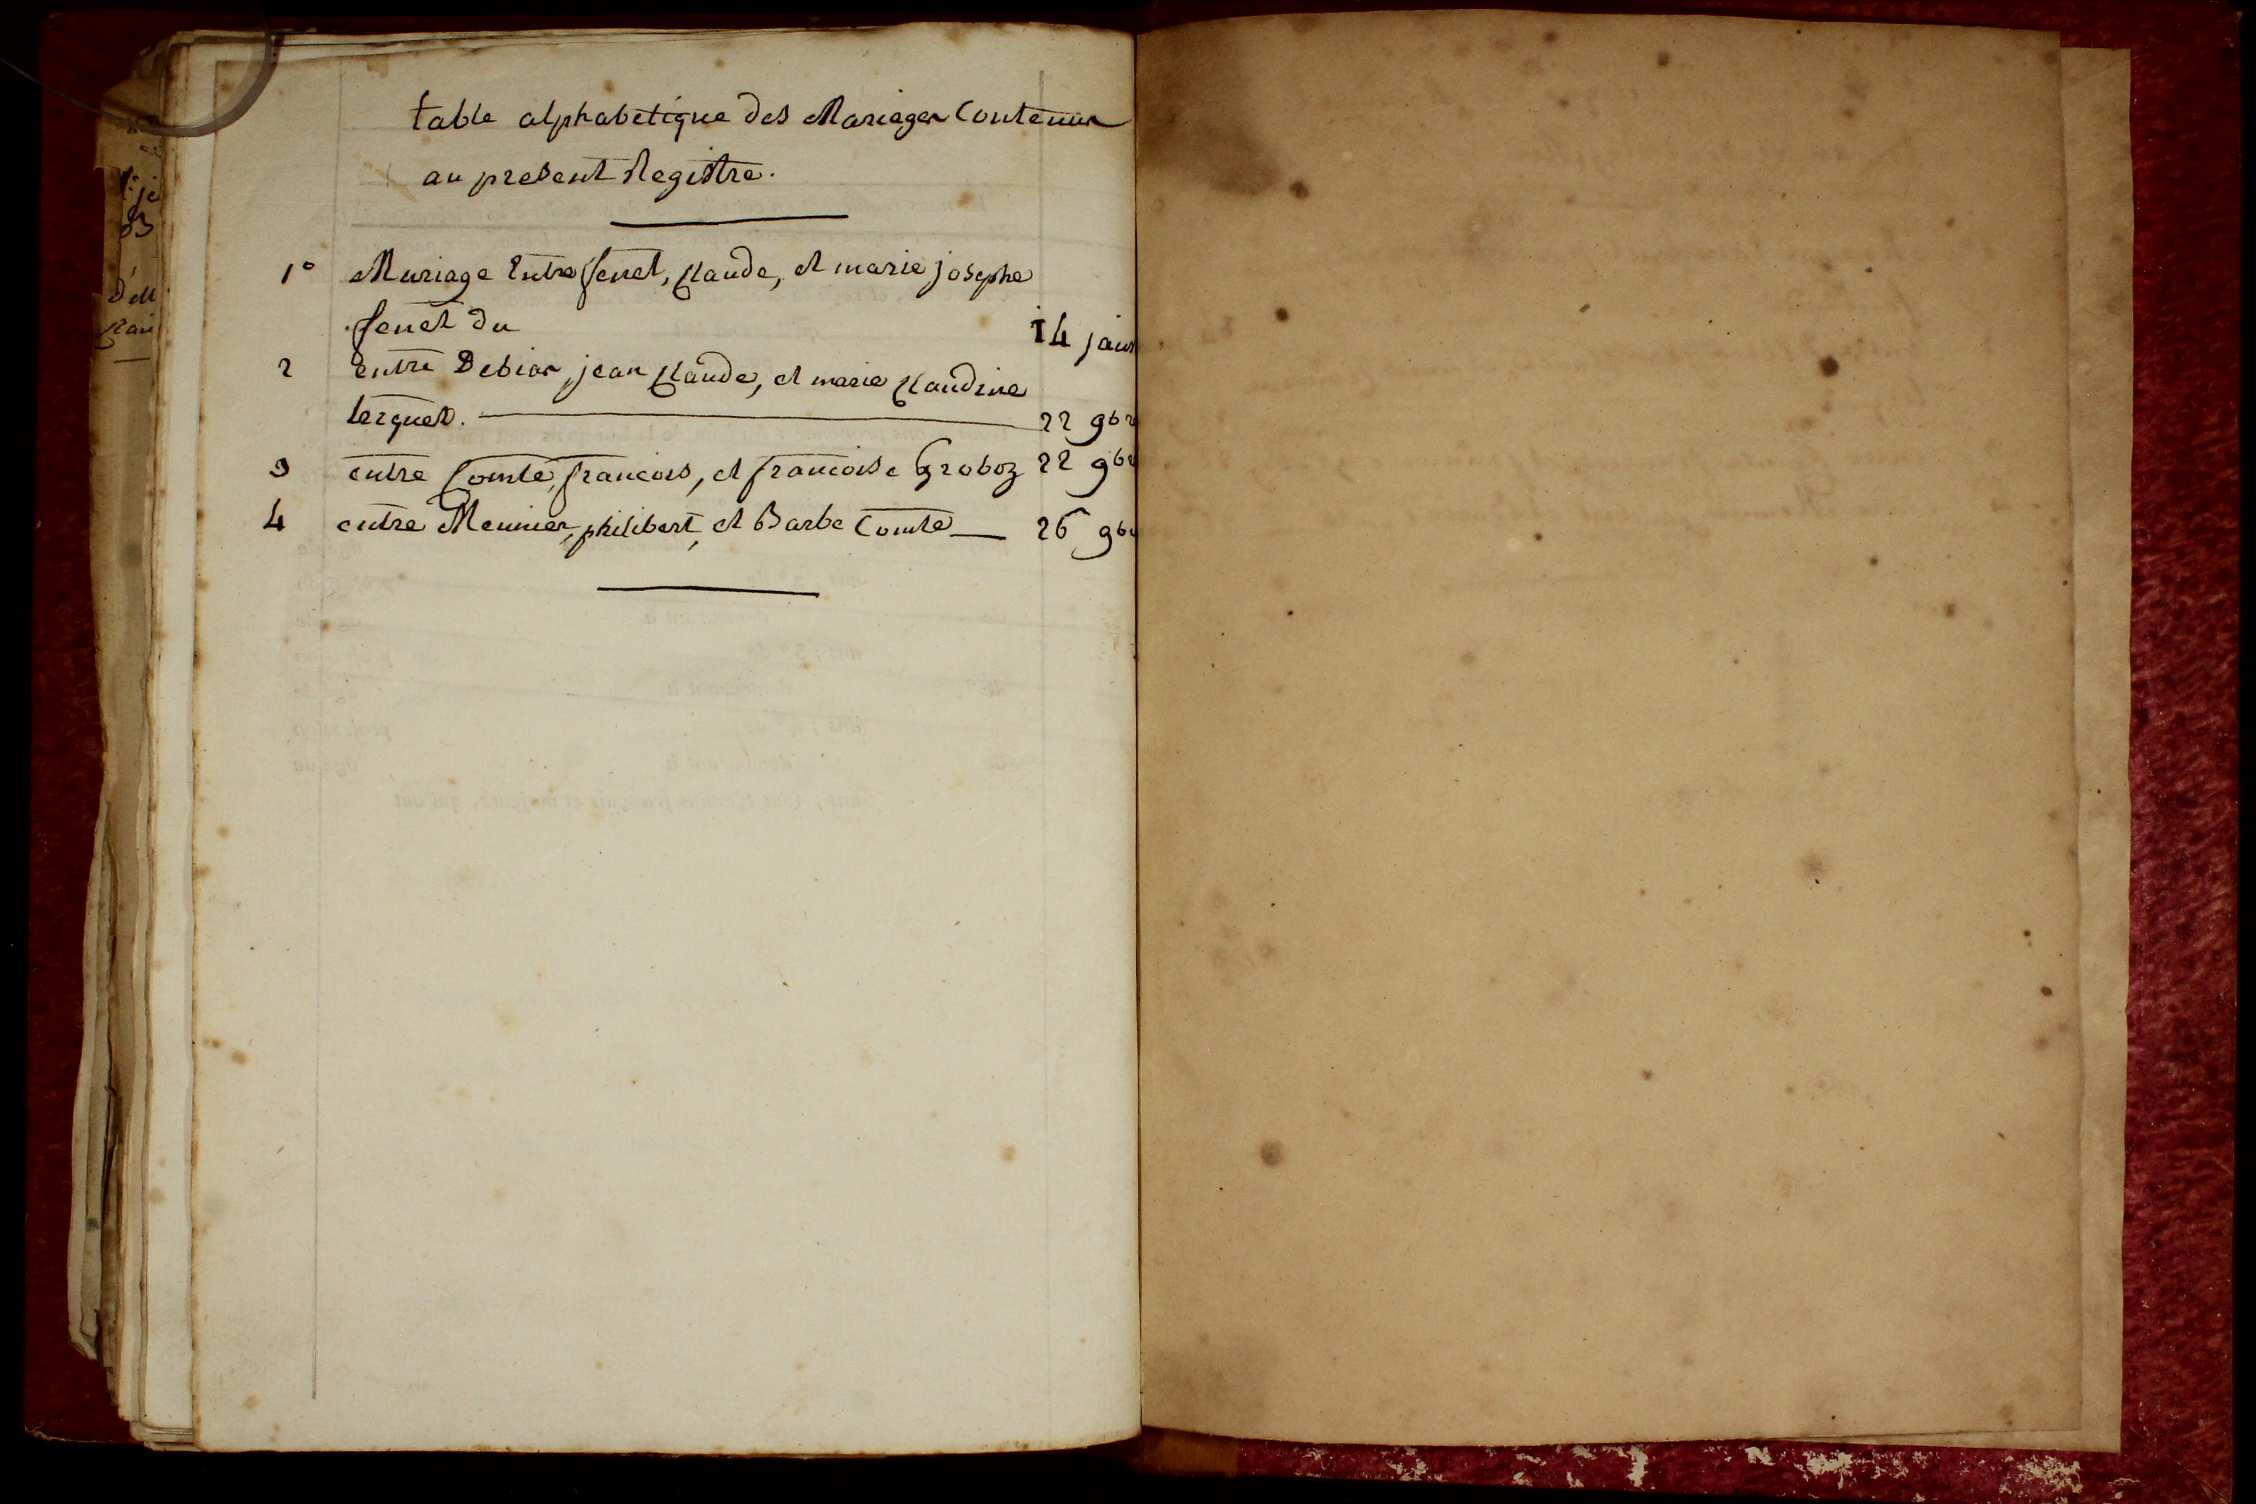 table alphabetique des Mariages Contenus
au present Registre.
1° Mariage Entre fenet, Claude, et marie josephe
fenet du 14 janv
2 Entre Debias, jean Claude, et marie Claudine
lerquet. 22 9br
3 entre Comte, francois, et francoise Groboz 22 9br
4 entre Meunier, philibert, et Barbe Comte 26 9br